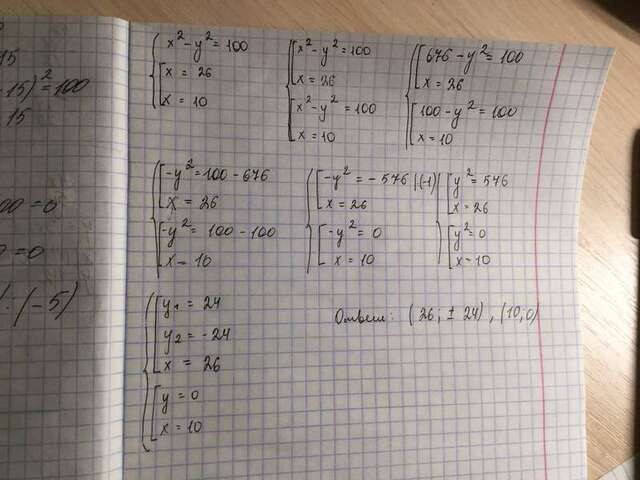 15
-15)² = 100
15
00 = 0
0 = 0
: (-5)
x² - y² = 100
x = 26
x = 10
x² - y² = 100
x = 26
x² - y² = 100
x = 10
676 - y² = 100
x = 26
100 - y² = 100
x = 10
-y² = 100 - 676
x = 26
-y² = 100 - 100
x = 10
-y² = -576 |·(-1)
x = 26
-y² = 0
x = 10
y² = 576
x = 26
y² = 0
x = 10
y₁ = 24
y₂ = -24
x = 26
y = 0
x = 10
Ответ: (26; ± 24), (10; 0)